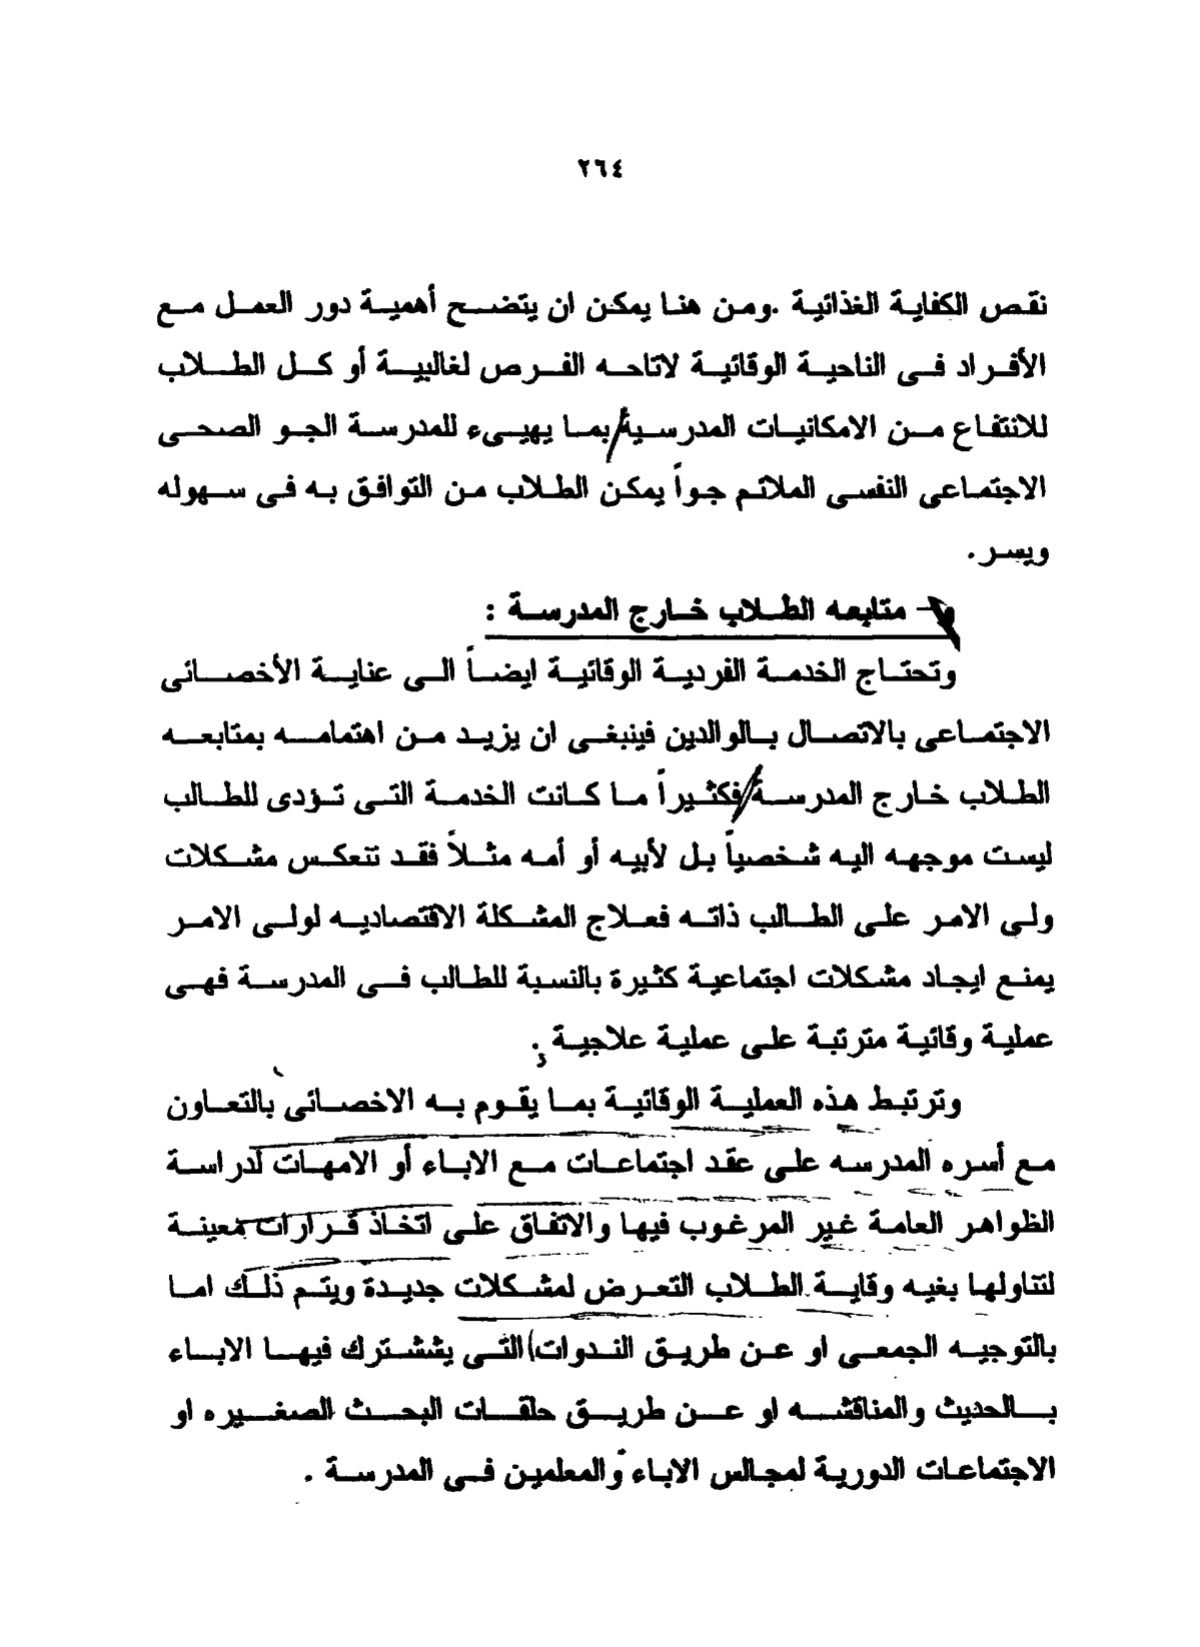 ٢٦٤
نقص الكفاية الغذائية .ومن هنا يمكن ان يتضح أهمية دور العمل مع
الأفراد فى الناحية الوقائية لاتاحه الفرص لغالبية أو كل الطلاب
للانتفاع من الامكانيات المدرسية بما يهيىء للمدرسة الجو الصحى
الاجتماعى النفسى الملائم جواً يمكن الطلاب من التوافق به فى سهوله
ويسر .
- متابعه الطلاب خارج المدرسة :
وتحتاج الخدمة الفردية الوقائية ايضاً الى عناية الأخصائى
الاجتماعى بالاتصال بالوالدين فينبغى ان يزيد من اهتمامه بمتابعه
الطلاب خارج المدرسة فكثيراً ما كانت الخدمة التى تؤدى للطالب
ليست موجهه اليه شخصياً بل لأبيه أو أمه مثلاً فقد تنعكس مشكلات
ولى الامر على الطالب ذاته فعلاج المشكلة الاقتصاديه لولى الامر
يمنع ايجاد مشكلات اجتماعية كثيرة بالنسبة للطالب فى المدرسة فهى
عملية وقائية مترتبة على عملية علاجية .
وترتبط هذه العملية الوقائية بما يقوم به الاخصائى بالتعاون
مع أسره المدرسه على عقد اجتماعات مع الاباء أو الامهات لدراسة
الظواهر العامة غير المرغوب فيها والاتفاق على اتخاذ قرارات معينة
لتناولها بغيه وقاية الطلاب التعرض لمشكلات جديدة ويتم ذلك اما
بالتوجيه الجمعى او عن طريق الندوات التى يششترك فيها الاباء
بالحديث والمناقشه او عن طريق حلقات البحث الصغيره او
الاجتماعات الدورية لمجالس الاباء والمعلمين فى المدرسة .